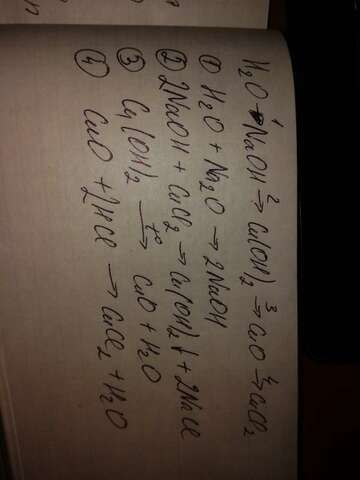 H₂O →¹ NaOH →² Cu(OH)₂ →³ CuO →⁴ CuCl₂
① H₂O + Na₂O → 2NaOH
② 2NaOH + CuCl₂ → Cu(OH)₂↓ + 2NaCl
③ Cu(OH)₂ →t° CuO + H₂O
④ CuO + 2HCl → CuCl₂ + H₂O